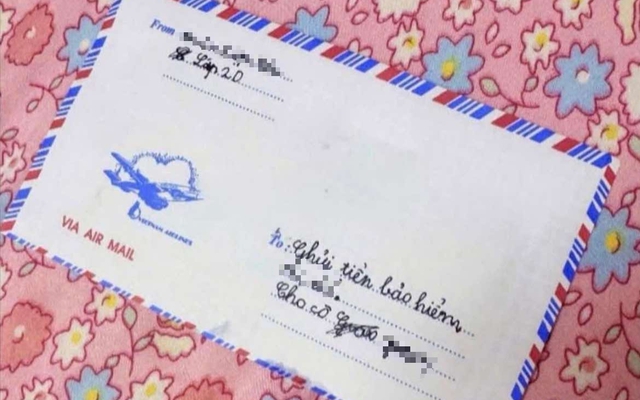 From
Lớp 2D
VIETNAM AIRLINES
VIA AIR MAIL
To: Ghửi tiền bảo hiểm
Cho cô